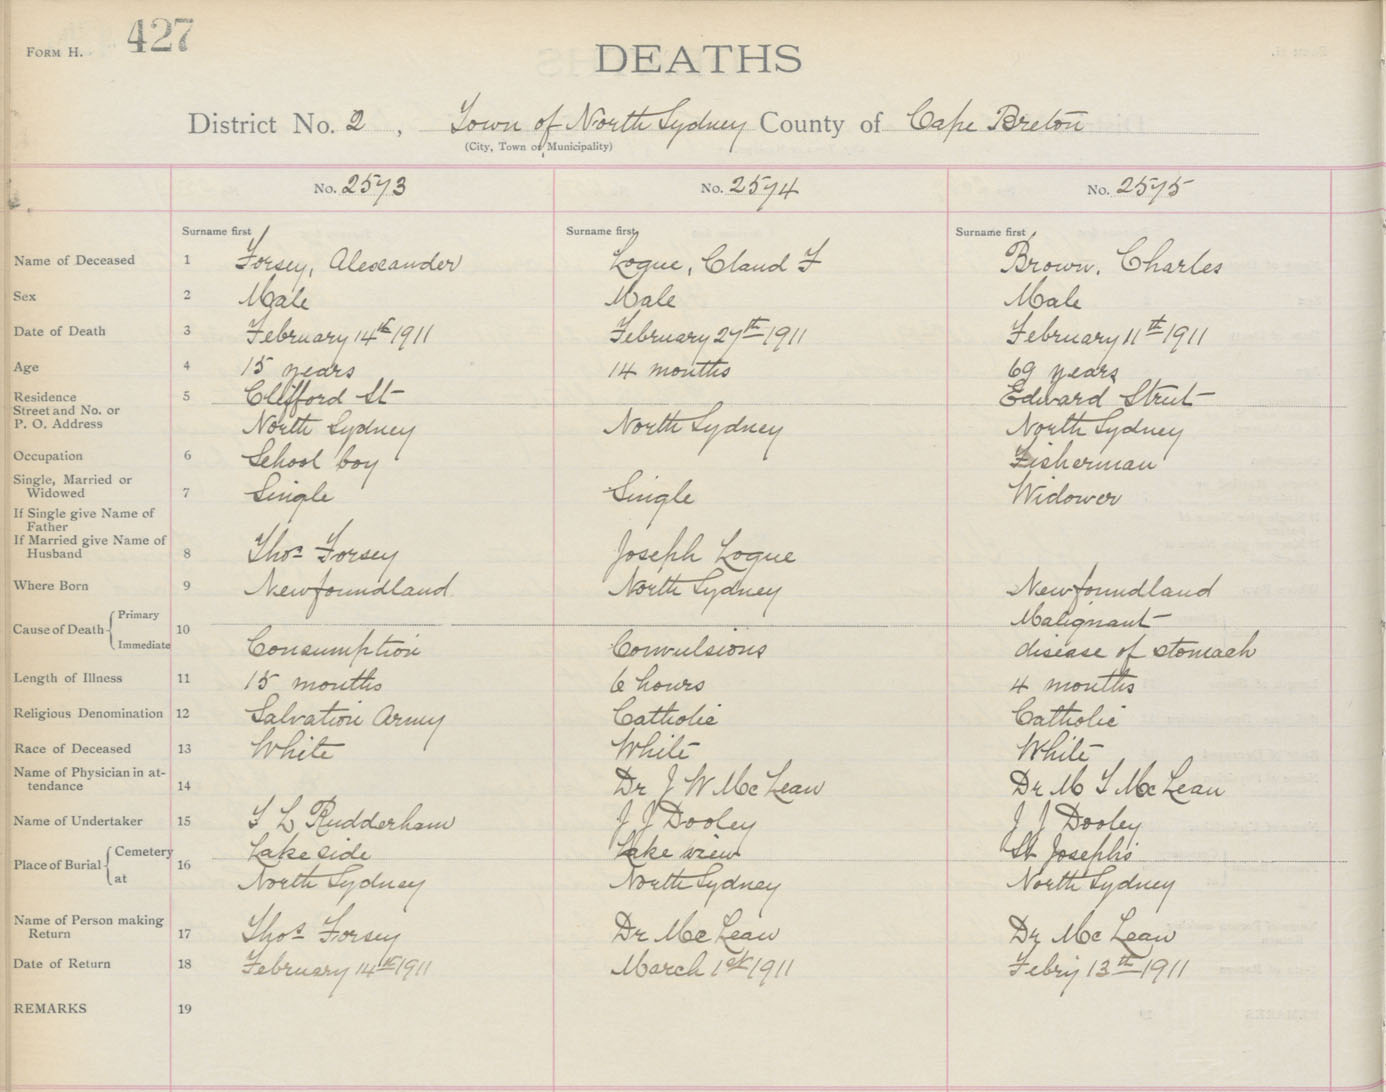 FORM H. 427
DEATHS
District No. 2, Town of North Sydney County of Cape Breton
(City, Town or Municipality)
No. 2573 No. 2574 No. 2575
Surname first Surname first Surname first
Name of Deceased 1 Forsey, Alexander Logue, Claud F Brown, Charles
Sex 2 Male Male Male
Date of Death 3 February 14th 1911 February 27th 1911 February 11th 1911
Age 4 15 years 14 months 69 years
Residence 5 Clifford St Edward Street
Street and No. or
P. O. Address North Sydney North Sydney North Sydney
Occupation 6 School boy Fisherman
Single, Married or
Widowed 7 Single Single Widower
If Single give Name of
Father
If Married give Name of
Husband 8 Thos Forsey Joseph Logue
Where Born 9 Newfoundland North Sydney Newfoundland
Primary Malignant
Cause of Death 10
Immediate Consumption Convulsions disease of stomach
Length of Illness 11 15 months 6 hours 4 months
Religious Denomination 12 Salvation Army Catholic Catholic
Race of Deceased 13 White White White
Name of Physician in at-
tendance 14 Dr J W McLean Dr M T McLean
Name of Undertaker 15 T L Rudderham J J Dooley J J Dooley
Cemetery Lake side Lake view St Josephs
Place of Burial 16
at North Sydney North Sydney North Sydney
Name of Person making
Return 17 Thos Forsey Dr McLean Dr McLean
Date of Return 18 February 14th 1911 March 1st 1911 Febry 13th 1911
REMARKS 19